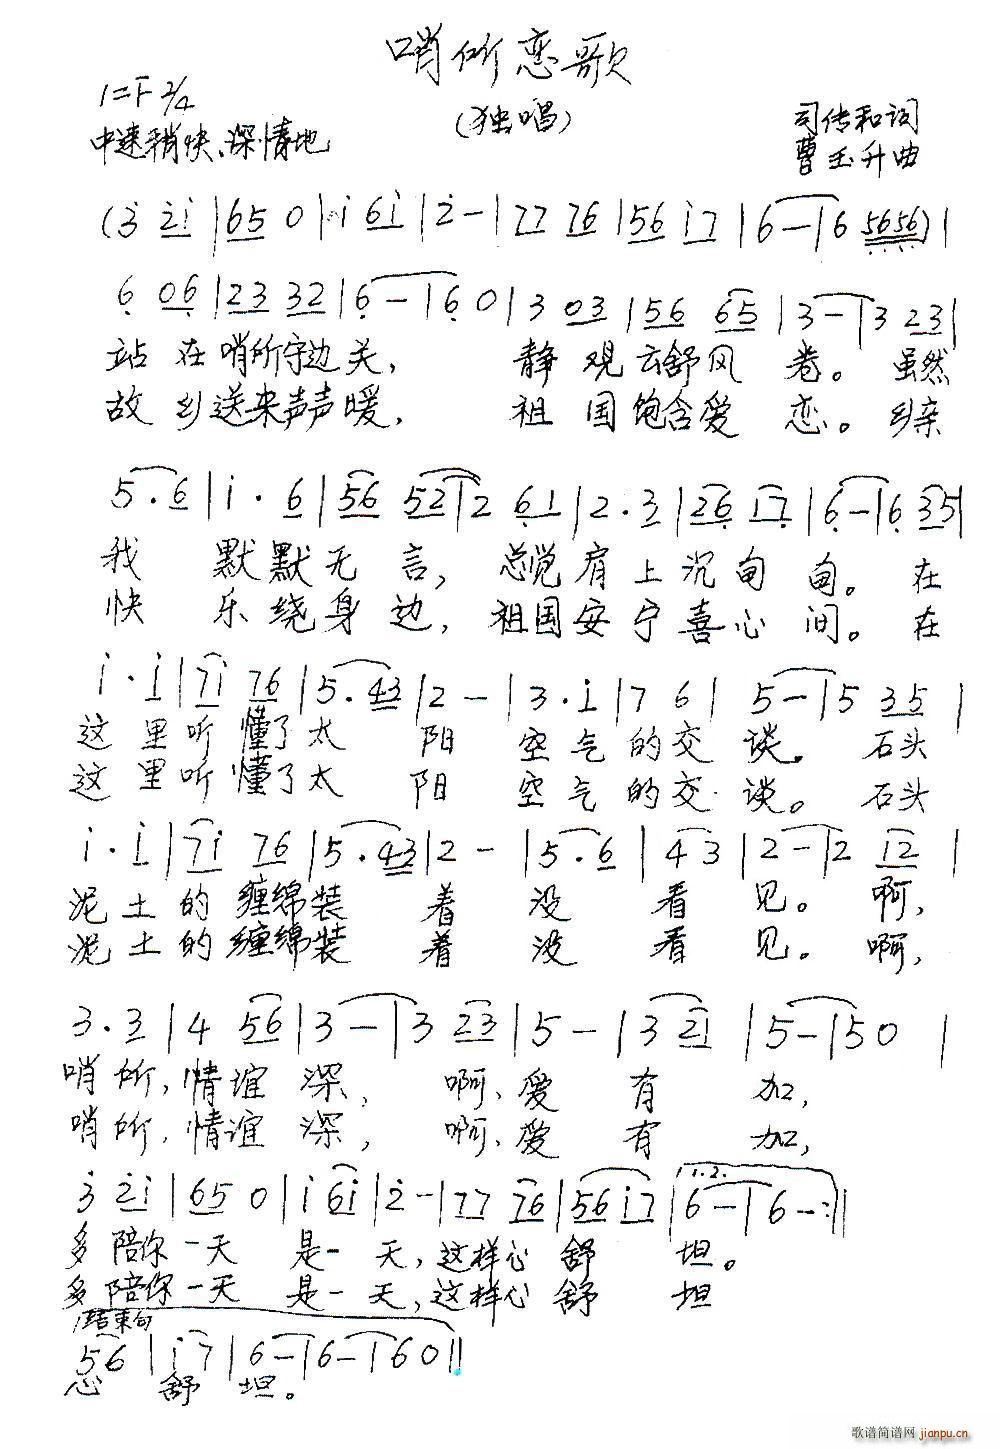 哨所恋歌
1=F 2/4
(独唱)
中速稍快、深情地
司传和词
曹玉升曲
(3̇ 2̇1̇ | 65 0 | 1̇ 61̇ | 2̇ - | 77 76 | 56 1̇7 | 6 - | 6 5656) |
6 06 | 23 32 | 6 - | 6 0 | 3 03 | 56 65 | 3 - | 3 23 |
站在哨所守边关, 静观云舒风卷。虽然
故乡送来声声暖, 祖国饱含爱恋。乡亲
5·6 | 1̇·6 | 56 52 | 2 61 | 2·3 | 26 17 | 6 - | 6 35 |
我默默无言, 总觉肩上沉甸甸。在
快乐绕身边, 祖国安宁喜心间。在
1̇·1̇ | 71̇ 76 | 5·43 | 2 - | 3·1 | 7 6 | 5 - | 5 35 |
这里听懂了太阳空气的交谈。石头
这里听懂了太阳空气的交谈。石头
1̇·1̇ | 71̇ 76 | 5·43 | 2 - | 5·6 | 43 | 2 - | 2 12 |
泥土的缠绵装着没看见。啊,
泥土的缠绵装着没看见。啊,
3·3 | 4 56 | 3 - | 3 23 | 5 - | 3 21 | 5 - | 50 |
哨所,情谊深, 啊、爱有加,
哨所,情谊深, 啊、爱有加,
3̇ 2̇1̇ | 65 0 | 1̇ 61̇ | 2̇ - | 77 76 | 56 1̇7 | 6 - | 6 - :||
1.2.
多陪你一天是一天,这样心舒坦。
多陪你一天是一天,这样心舒坦
结束句
56 | 1̇7 | 6 - | 6 - | 60 ||
心舒坦。
歌谱简谱网
jianpu.cn